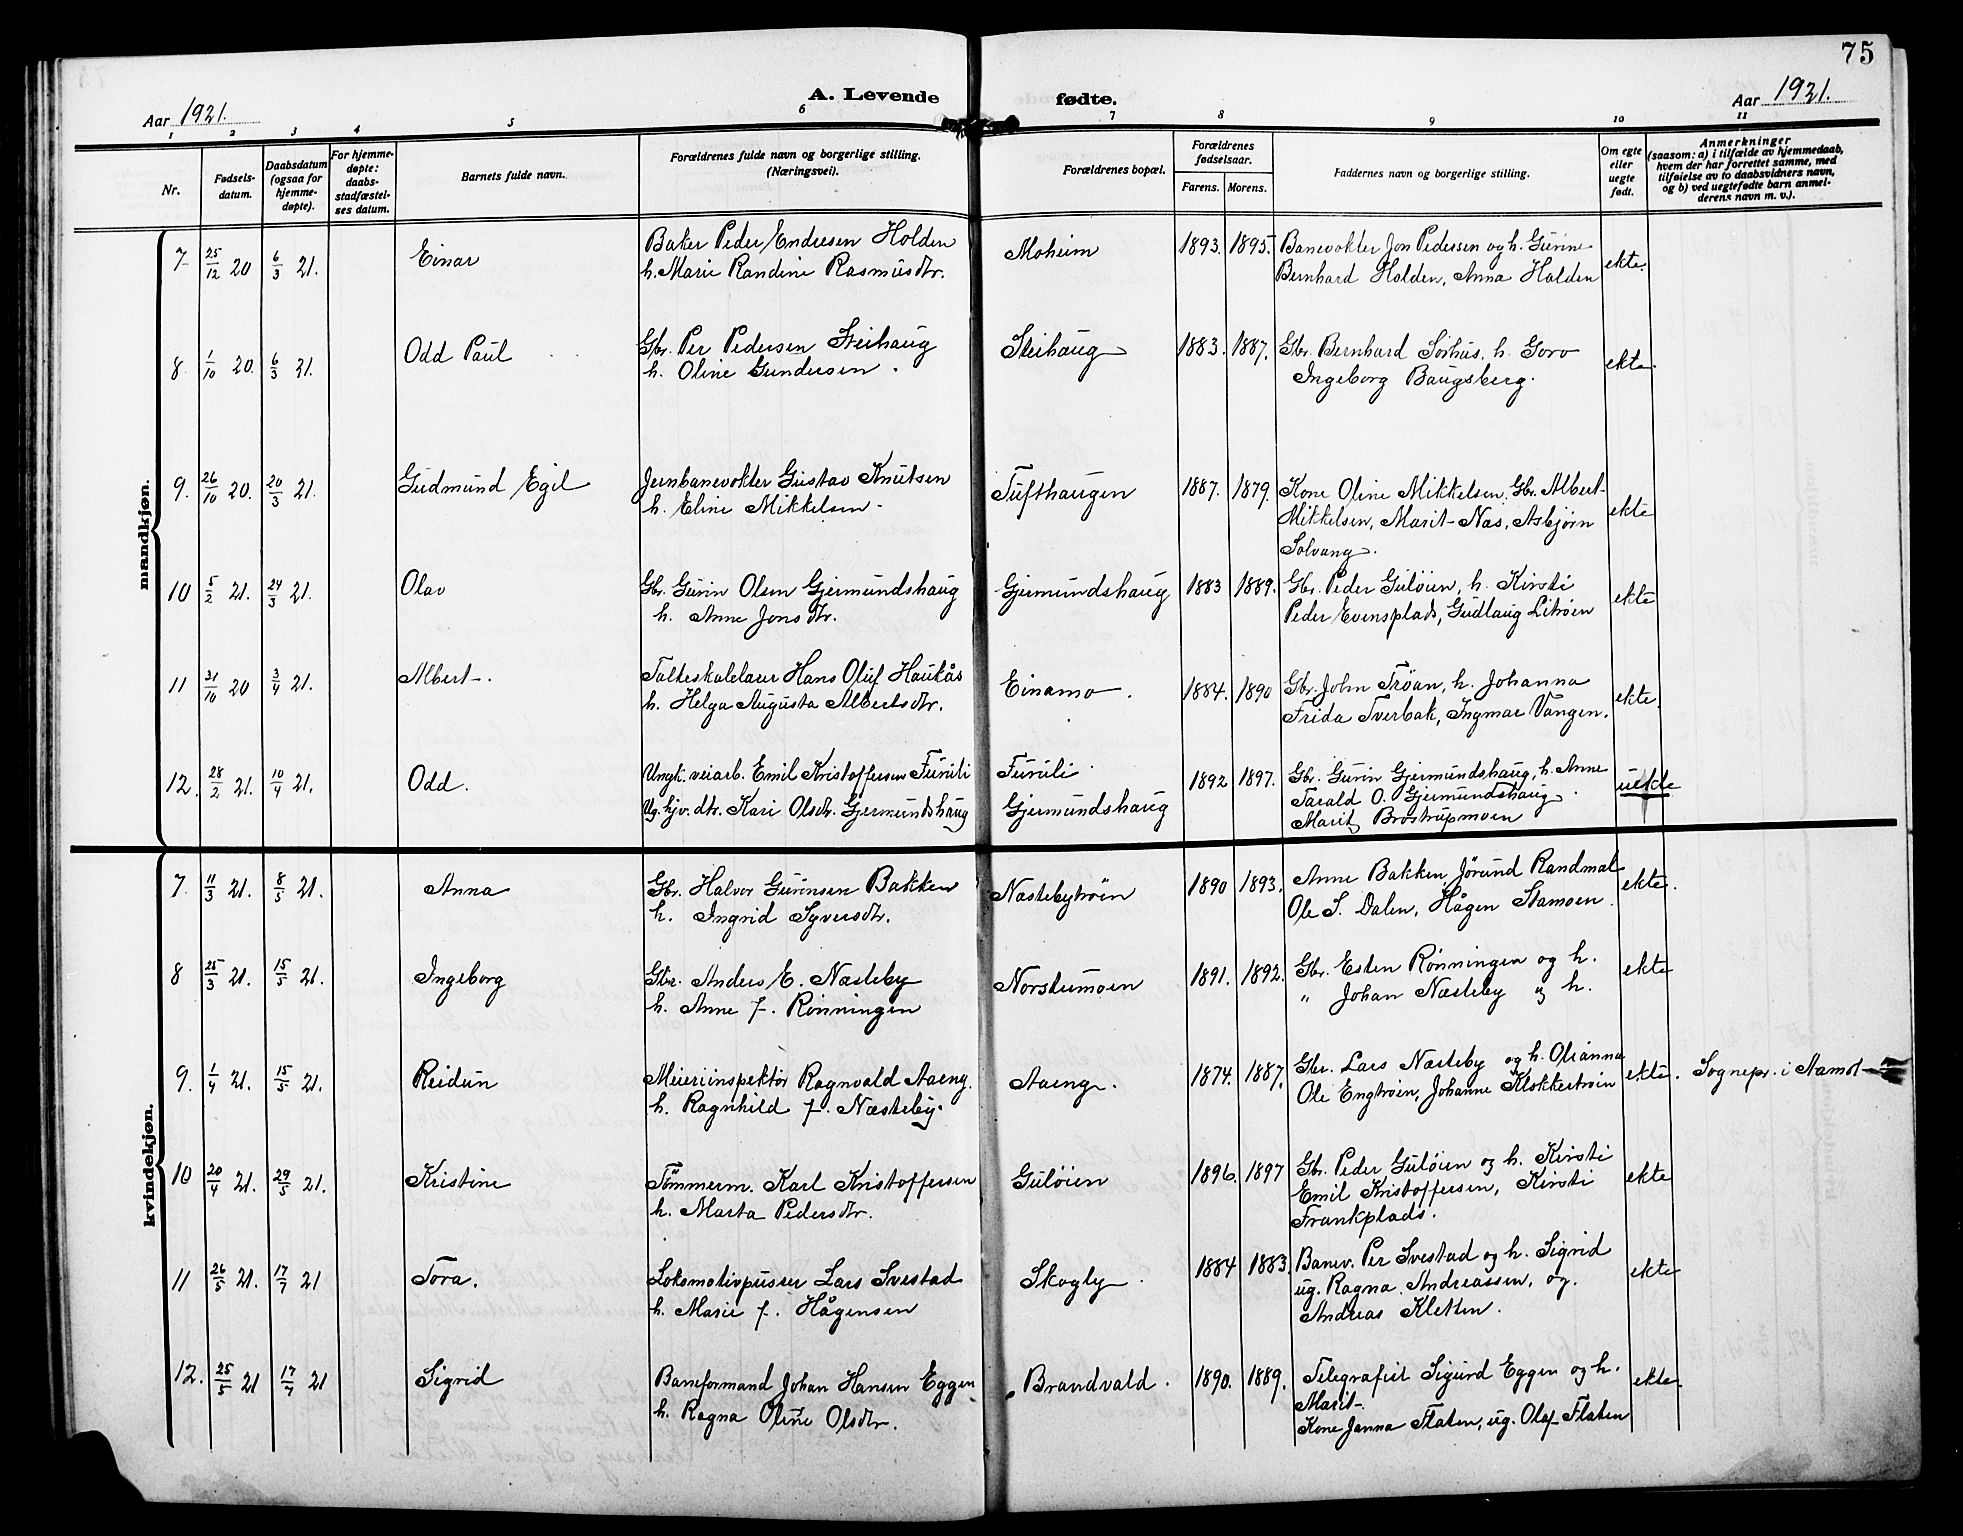 75
Aar 1921.
A. Levende fødte.
Aar 1921.
1 2 3 4 5 6 7 8 9 10 11
Nr.
Fødsels-
datum.
Daabsdatum
(ogsaa for
hjemme-
døpte).
For hjemme-
døpte:
daabs-
stadfæstel-
ses datum.
Barnets fulde navn.
Forældrenes fulde navn og borgerlige stilling.
(Næringsvei).
Forældrenes bopæl.
Forældrenes
fødselsaar.
Farens. Morens.
Faddernes navn og borgerlige stilling.
Om egte
eller
uegte
født.
Anmerkninger
(saasom: a) i tilfælde av hjemmedaab,
hvem der har forrettet samme, med
tilføielse av to daabsvidners navn,
og b) ved uegtefødte barn anmel-
derens navn m. v.).
mandkjøn.
7 25/12 20 6/3 21. Einar Baker Peder Endresen Holden Moheim 1893. 1895 Banevokter Jon Pedersen og h. Gurine ekte.
h. Marie Randine Rasmusdtr. Bernhard Holden, Anna Holden
8 1/10 20. 6/3 21. Odd Paul Gbr. Per Pedersen Steihaug Steihaug 1883. 1887. Gbr. Bernhard Sørhus, h. Goro ekte.
h. Oline Gundersen. Ingeborg Baugsberg.
9. 26/10 20. 20/3 21. Gudmund Egil Jernbanevokter Gustav Knutsen Tufthaugen 1887. 1879. Kone Oline Mikkelsen, Gbr. Albert ekte
h. Eline Mikkelsen Mikkelsen, Marit Næs, Asbjørn
Solvang.
10 5/2 21. 24/3 21. Olav Gbr. Gurin Olsen Gjermundshaug Gjermundshaug 1883 1889. Gbr. Peder Guløien, h. Kirsti ekte
h. Anne Jonsdtr. Peder Evensplads, Gudlaug Litrøen
11 31/10 20 3/4 21. Albert. Folkeskolelærer Hans Oluf Haukås Einamo. 1884. 1890 Gbr. John Trøan, h. Johanna ekte.
h. Helga Augusta Albertsdtr. Frida Tverbak, Ingmar Vangen.
12. 28/2 21. 10/4 21. Odd. Ungk. veiarb. Emil Kristoffersen Furuli Furuli 1892 1897. Gbr. Gurin Gjermundshaug, h. Anne uekte
Ug. hjv. dtr. Kari Olsdtr. Gjermundshaug Gjermundshaug Tarald O. Gjermundshaug.
Marit Brostrupmoen
kvindekjøn.
7. 11/3 21. 8/5 21. Anna Gbr. Halvor Gurinsen Bakken Næstebytrøen 1890 1893. Anne Bakken, Jørund Randmæl ekte.
h. Ingrid Syversdtr. Ole S. Dalen, Hågen Stamoen.
8 25/3 21. 15/5 21. Ingeborg Gbr. Anders E. Næsteby Norstumoen 1891. 1892. Gbr. Esten Rønningen og h. ekte
h. Anne f. Rønningen " Johan Næsteby og h.
9. 1/4 21. 15/5 21. Reidun Meieriinspektør Ragnvald Aaeng. Aaeng. 1874. 1887. Gbr. Lars Næsteby og h. Olianna ekte. Sognepr. i Aamot
h. Ragnhild f. Næsteby. Ole Engtrøen, Johanne Klokkertrøen
10 20/4 21. 29/5 21. Kristine Tømmerm. Karl Kristoffersen Guløien 1896. 1897 Gbr. Peder Guløien og h. Kirsti ekte
h. Marta Pedersdtr. Emil Kristoffersen, Kirsti
Frankplads.
11 26/5 21. 17/7 21 Tora. Lokomotivpusser Lars Svestad Skogly 1884 1883. Banev. Per Svestad og h. Sigrid ekte
h. Marie f. Hågensen ug. Ragna Andreassen, og.
Andreas Kletten.
12. 25/5 21 17/7 21 Sigrid Baneformand Johan Hansen Eggen Brandvald. 1890. 1889. Telegrafist Sigurd Eggen og h. ekte.
h. Ragna Oline Olsdtr. Marit
Kone Janna Flaten, ug. Olaf Flaten